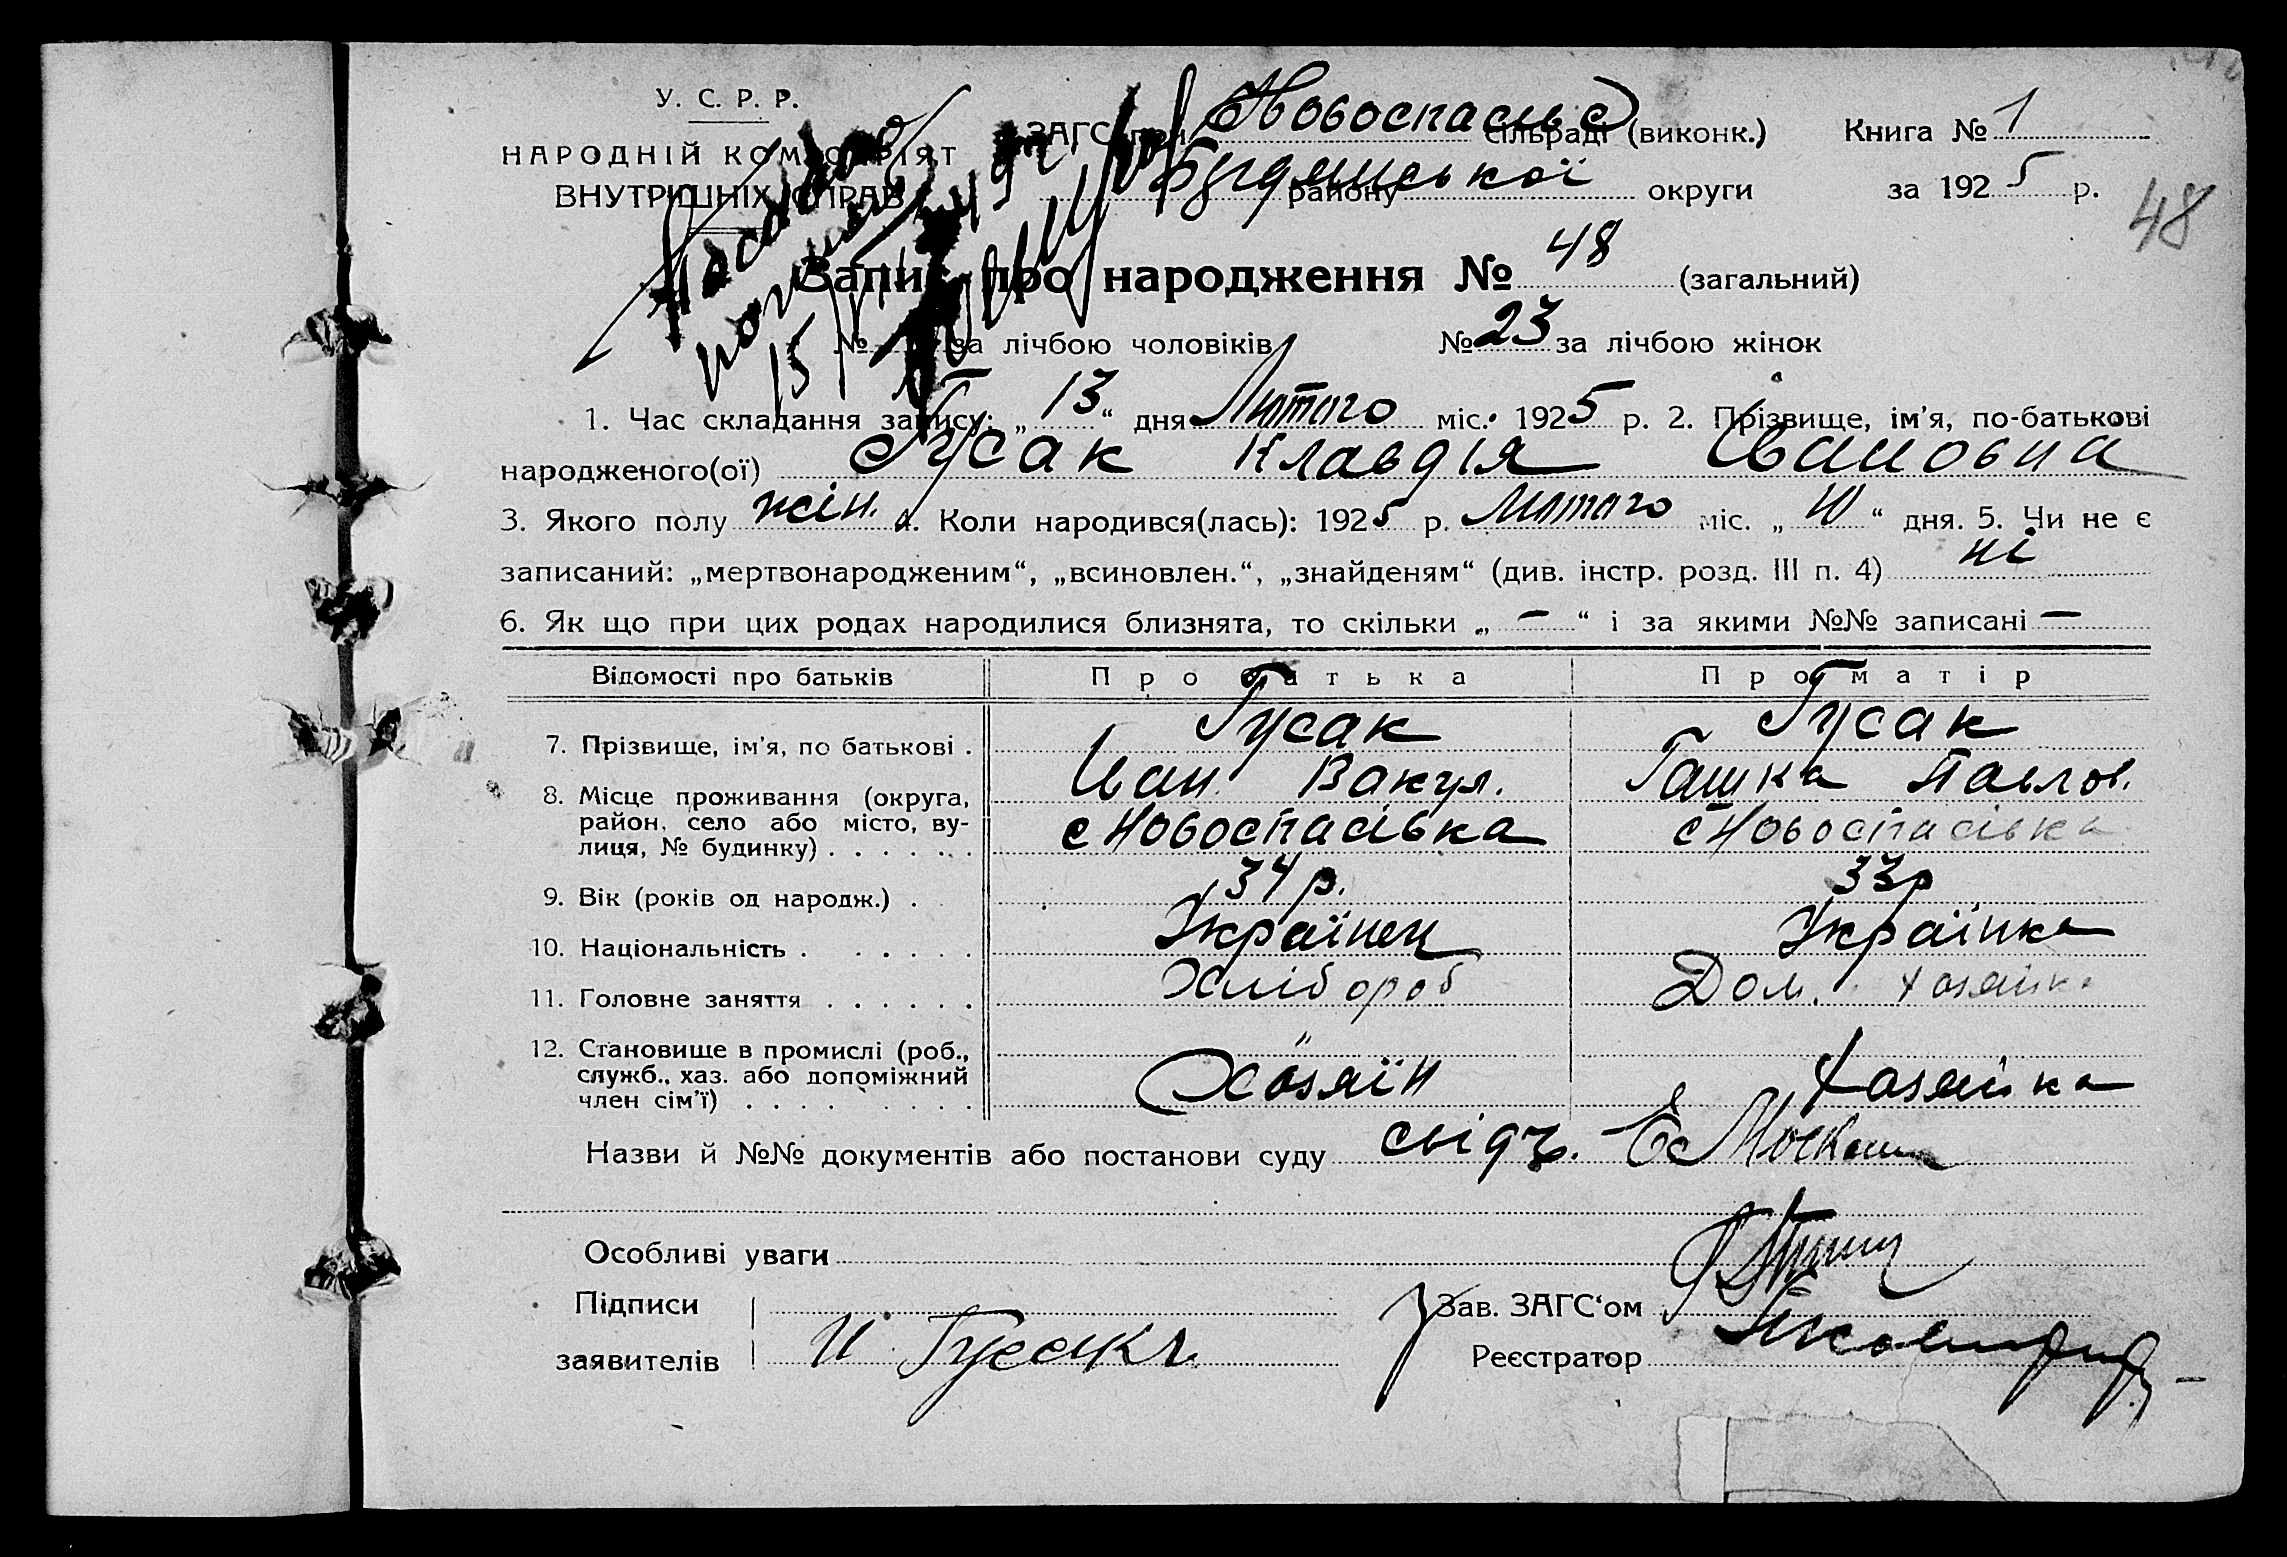 У. С. Р. Р.
НАРОДНІЙ КОМІСАРІЯТ
ВНУТРІШНІХ СПРАВ
ЗАГС при Новоспасье сільраді (виконк.) Книга № 1
району округи за 1925 р.
48
Запис про народження № 48 (загальний)
№ за лічбою чоловіків № 23 за лічбою жінок
1. Час складання запису: „13“ дня Лютого міс. 1925 р. 2. Прізвище, ім'я, по-батькові
народженого(ої) Гусак Клавдія Івановна
3. Якого полу жін. 4. Коли народився(лась): 1925 р. Лютого міс. „10“ дня. 5. Чи не є
записаний: „мертвонародженим“, „всиновлен.“, „знайденям“ (див. інстр. розд. III п. 4) ні
6. Як що при цих родах народилися близнята, то скільки „ — “ і за якими №№ записані —
Відомості про батьків Про батька Про матір
7. Прізвище, ім'я, по батькові . Гусак Гусак
Иван Вакул. Гашка Павлов.
8. Місце проживання (округа, район, село або місто, вулиця, № будинку) . . . . . . с Новоспасівка с Новоспасівка
9. Вік (років од народж.) . 34 р. 33 р
10. Національність . . . . . . Українец Українка
11. Головне заняття . . . . . . Хлібороб Дом. хозяйка
12. Становище в промислі (роб., служб., хаз. або допоміжний член сім'ї) . . . . . . . . . Хозяїн хозяйка
Назви й №№ документів або постанови суду
Особливі уваги
Підписи Зав. ЗАГС‘ом
заявителів И Гусакъ Реєстратор